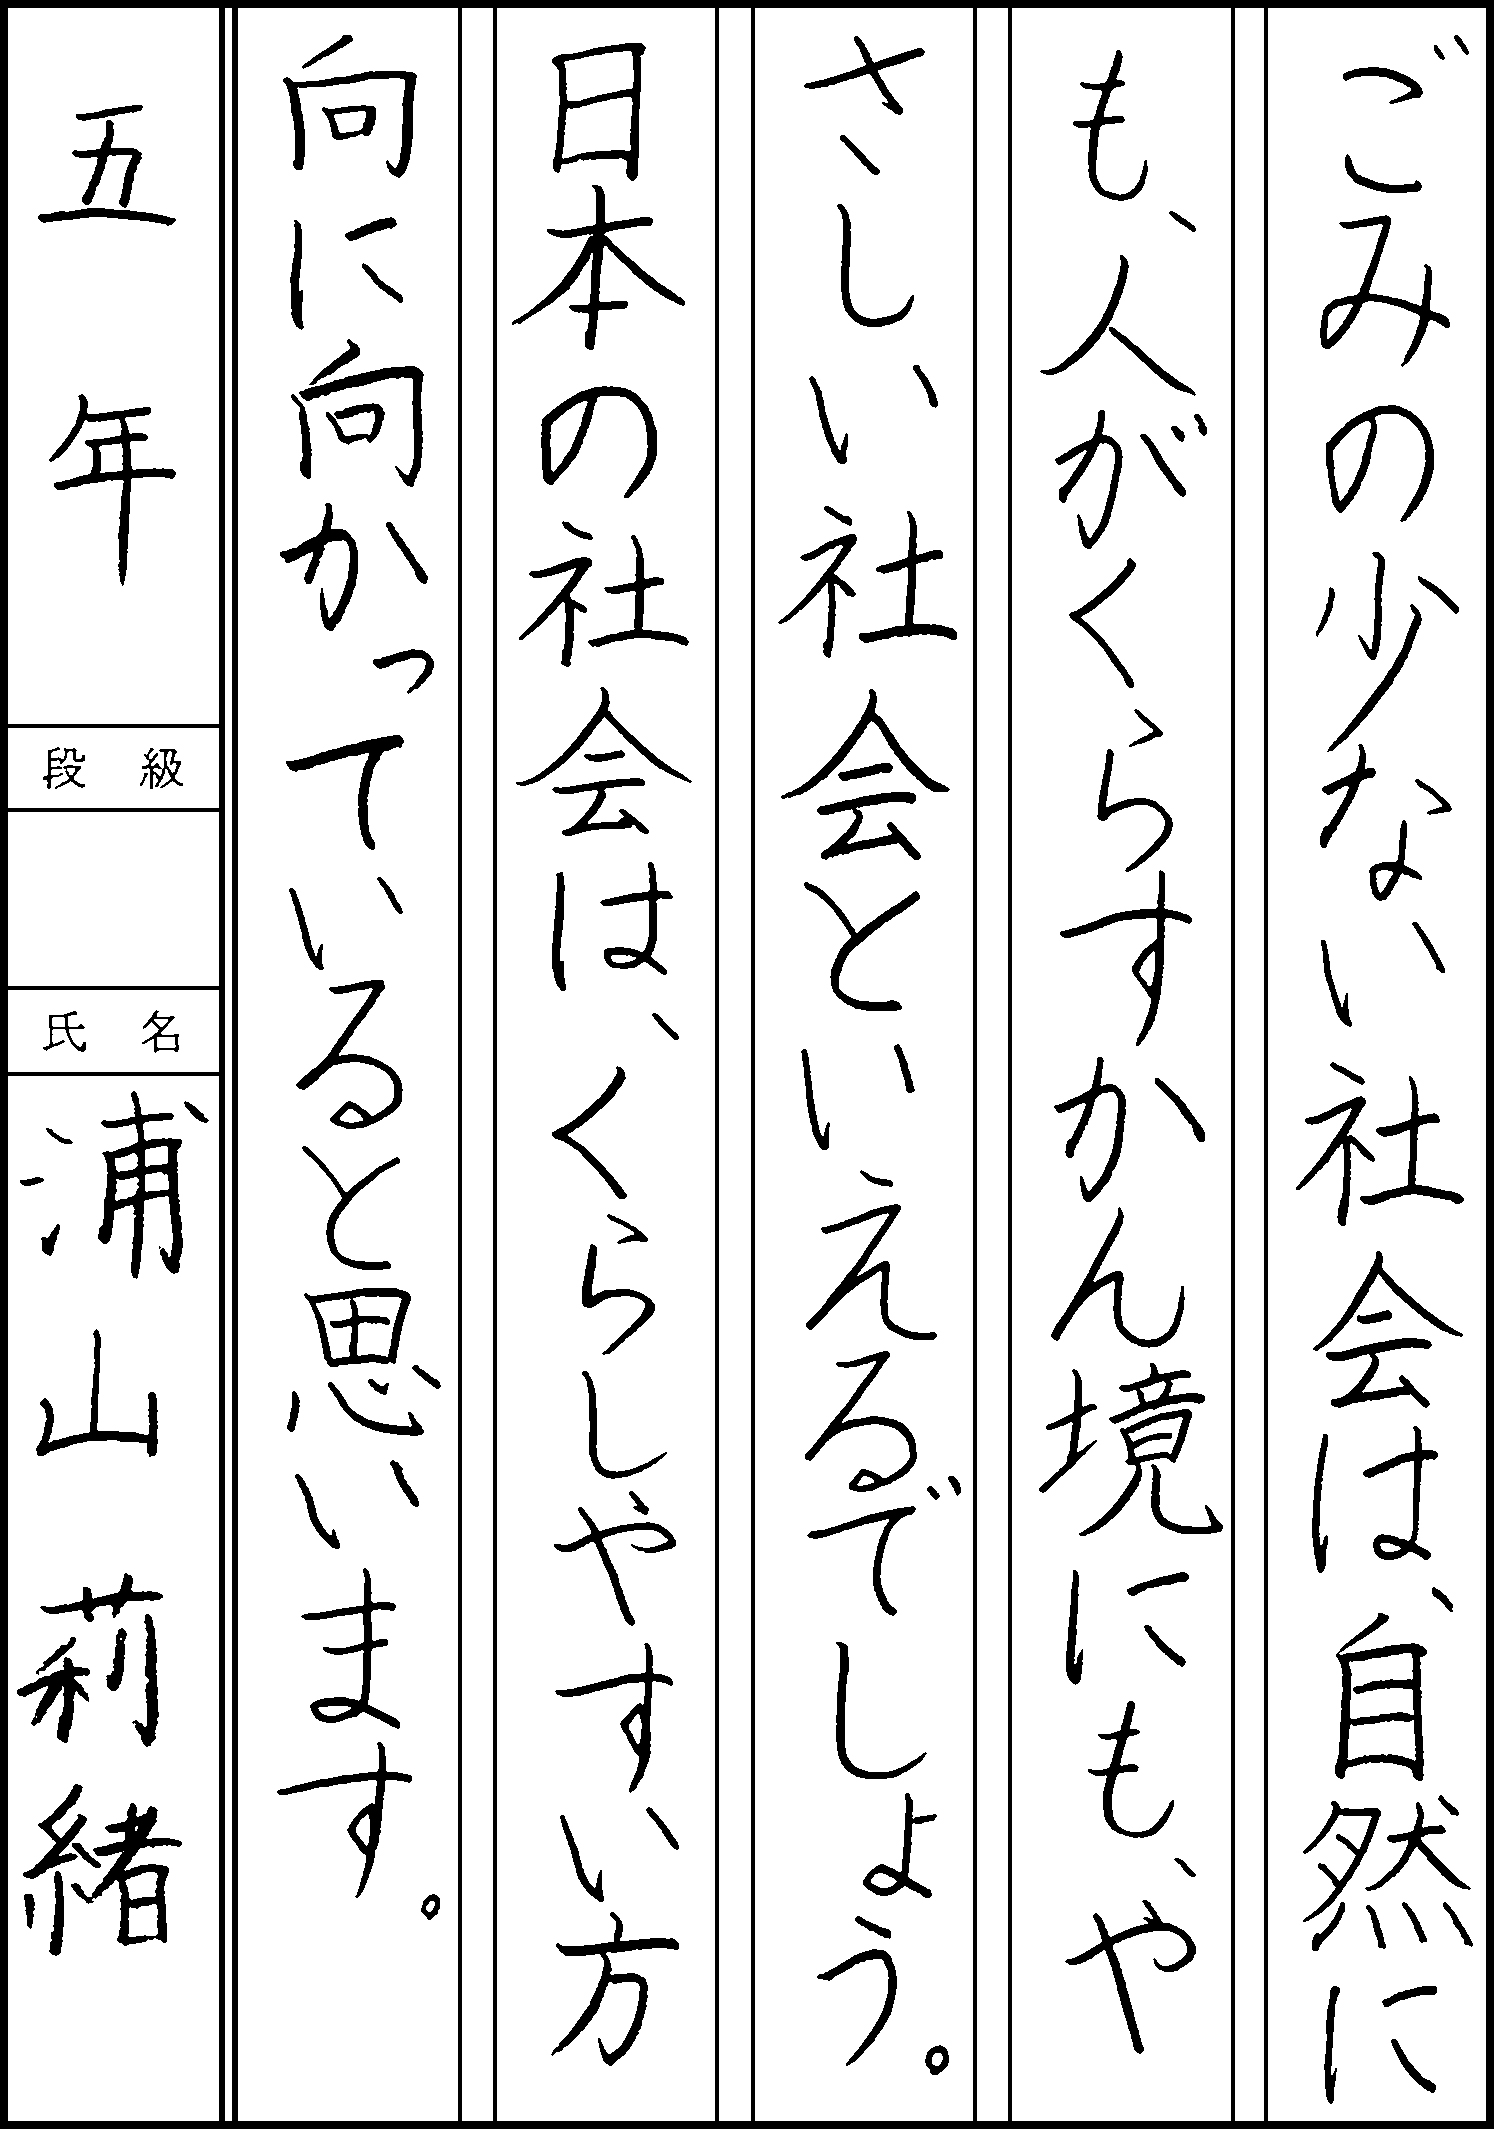 ごみの少ない社会は、自然に
も、人がくらすかん境にも、や
さしい社会といえるでしょう。
日本の社会は、くらしやすい方
向に向かっていると思います。
五年
段級
氏名
浦山莉緒